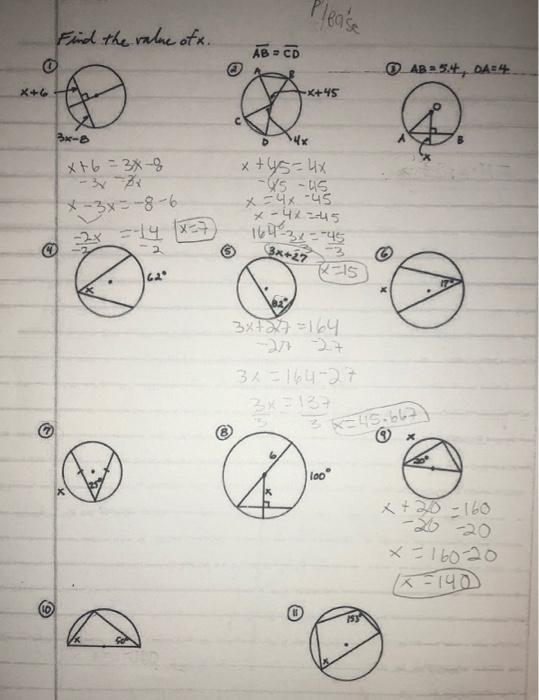 Please
Find the value of x.
① x+6
3x-8
x+6 = 3x-8
-3x -3x
x-3x = -8-6
-2x = -14
-2 -2
x=7
② AB = CD
A B
x+45
C
D 4x
x+45 = 4x
-45 -45
x = 4x -45
x - 4x = -45
-3x = -45
-3
x=15
③ AB = 5.4, OA = 4
O
A B
x
④ x 62°
⑤ 164°
3x+27
82°
3x+27 = 164
-27 -27
3x = 164-27
3x = 137
3 3
x=45.667
⑥ x 17°
⑦ x 25°
⑧ 6
100°
x
⑨ x
20°
x + 20 = 160
-20 -20
x = 160-20
x = 140
⑩ x 50°
⑪ 153°
x